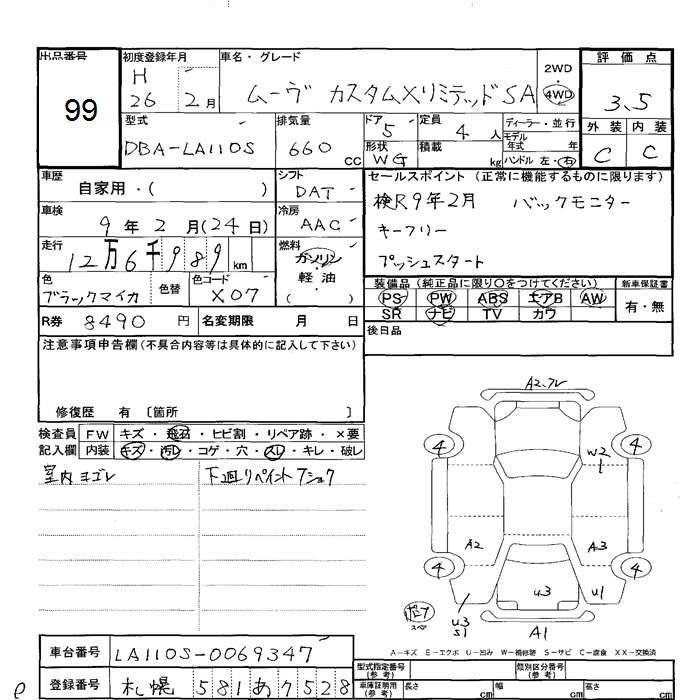 出品番号 初度登録年月 車名・グレード 評価点
99
H
26 2月
ムーヴ カスタムXリミテッドSA
2WD
4WD
3.5
外装 内装
C C
型式 排気量 ドア 定員 ディーラー・並行
DBA-LA110S 660cc 5 4人
モデル年式 年式
形状 積載 ハンドル 左・右
WG kg
車歴 シフト セールスポイント(正常に機能するものに限ります)
自家用・( ) DAT
検R9年2月 バックモニター
キーフリー
プッシュスタート
車検 冷房
9年2月(24日) AAC
走行 燃料
12万6千989km ガソリン・軽油・( )
色 色替 色コード
ブラックマイカ X07
装備品(純正品に限り○をつけてください) 新車保証書
PS PW ABS エアB AW 有・無
SR ナビ TV カワ
R券 8490円 名変期限 月 日
後日品
注意事項申告欄(不具合内容等は具体的に記入して下さい)
修復歴 有〔箇所 〕
検査員記入欄 FW キズ・飛石・ヒビ割・リペア跡・×要
内装 キズ・汚レ・コゲ・穴・スレ・キレ・破レ
室内ヨゴレ 下廻リペイントアショク
A2、フレ
4 4
W2
A2 A3
4 4
U3 U1
スペア
U3
S1
A1
A−キズ E−エクボ U−凹み W−補修跡 S−サビ C−腐食 XX−交換済
車台番号 LA110S-0069347
登録番号 札幌 581 あ 7528
型式指定番号(参考) 類別区分番号(参考)
車庫証明用(参考) 長さ cm 幅 cm 高さ cm